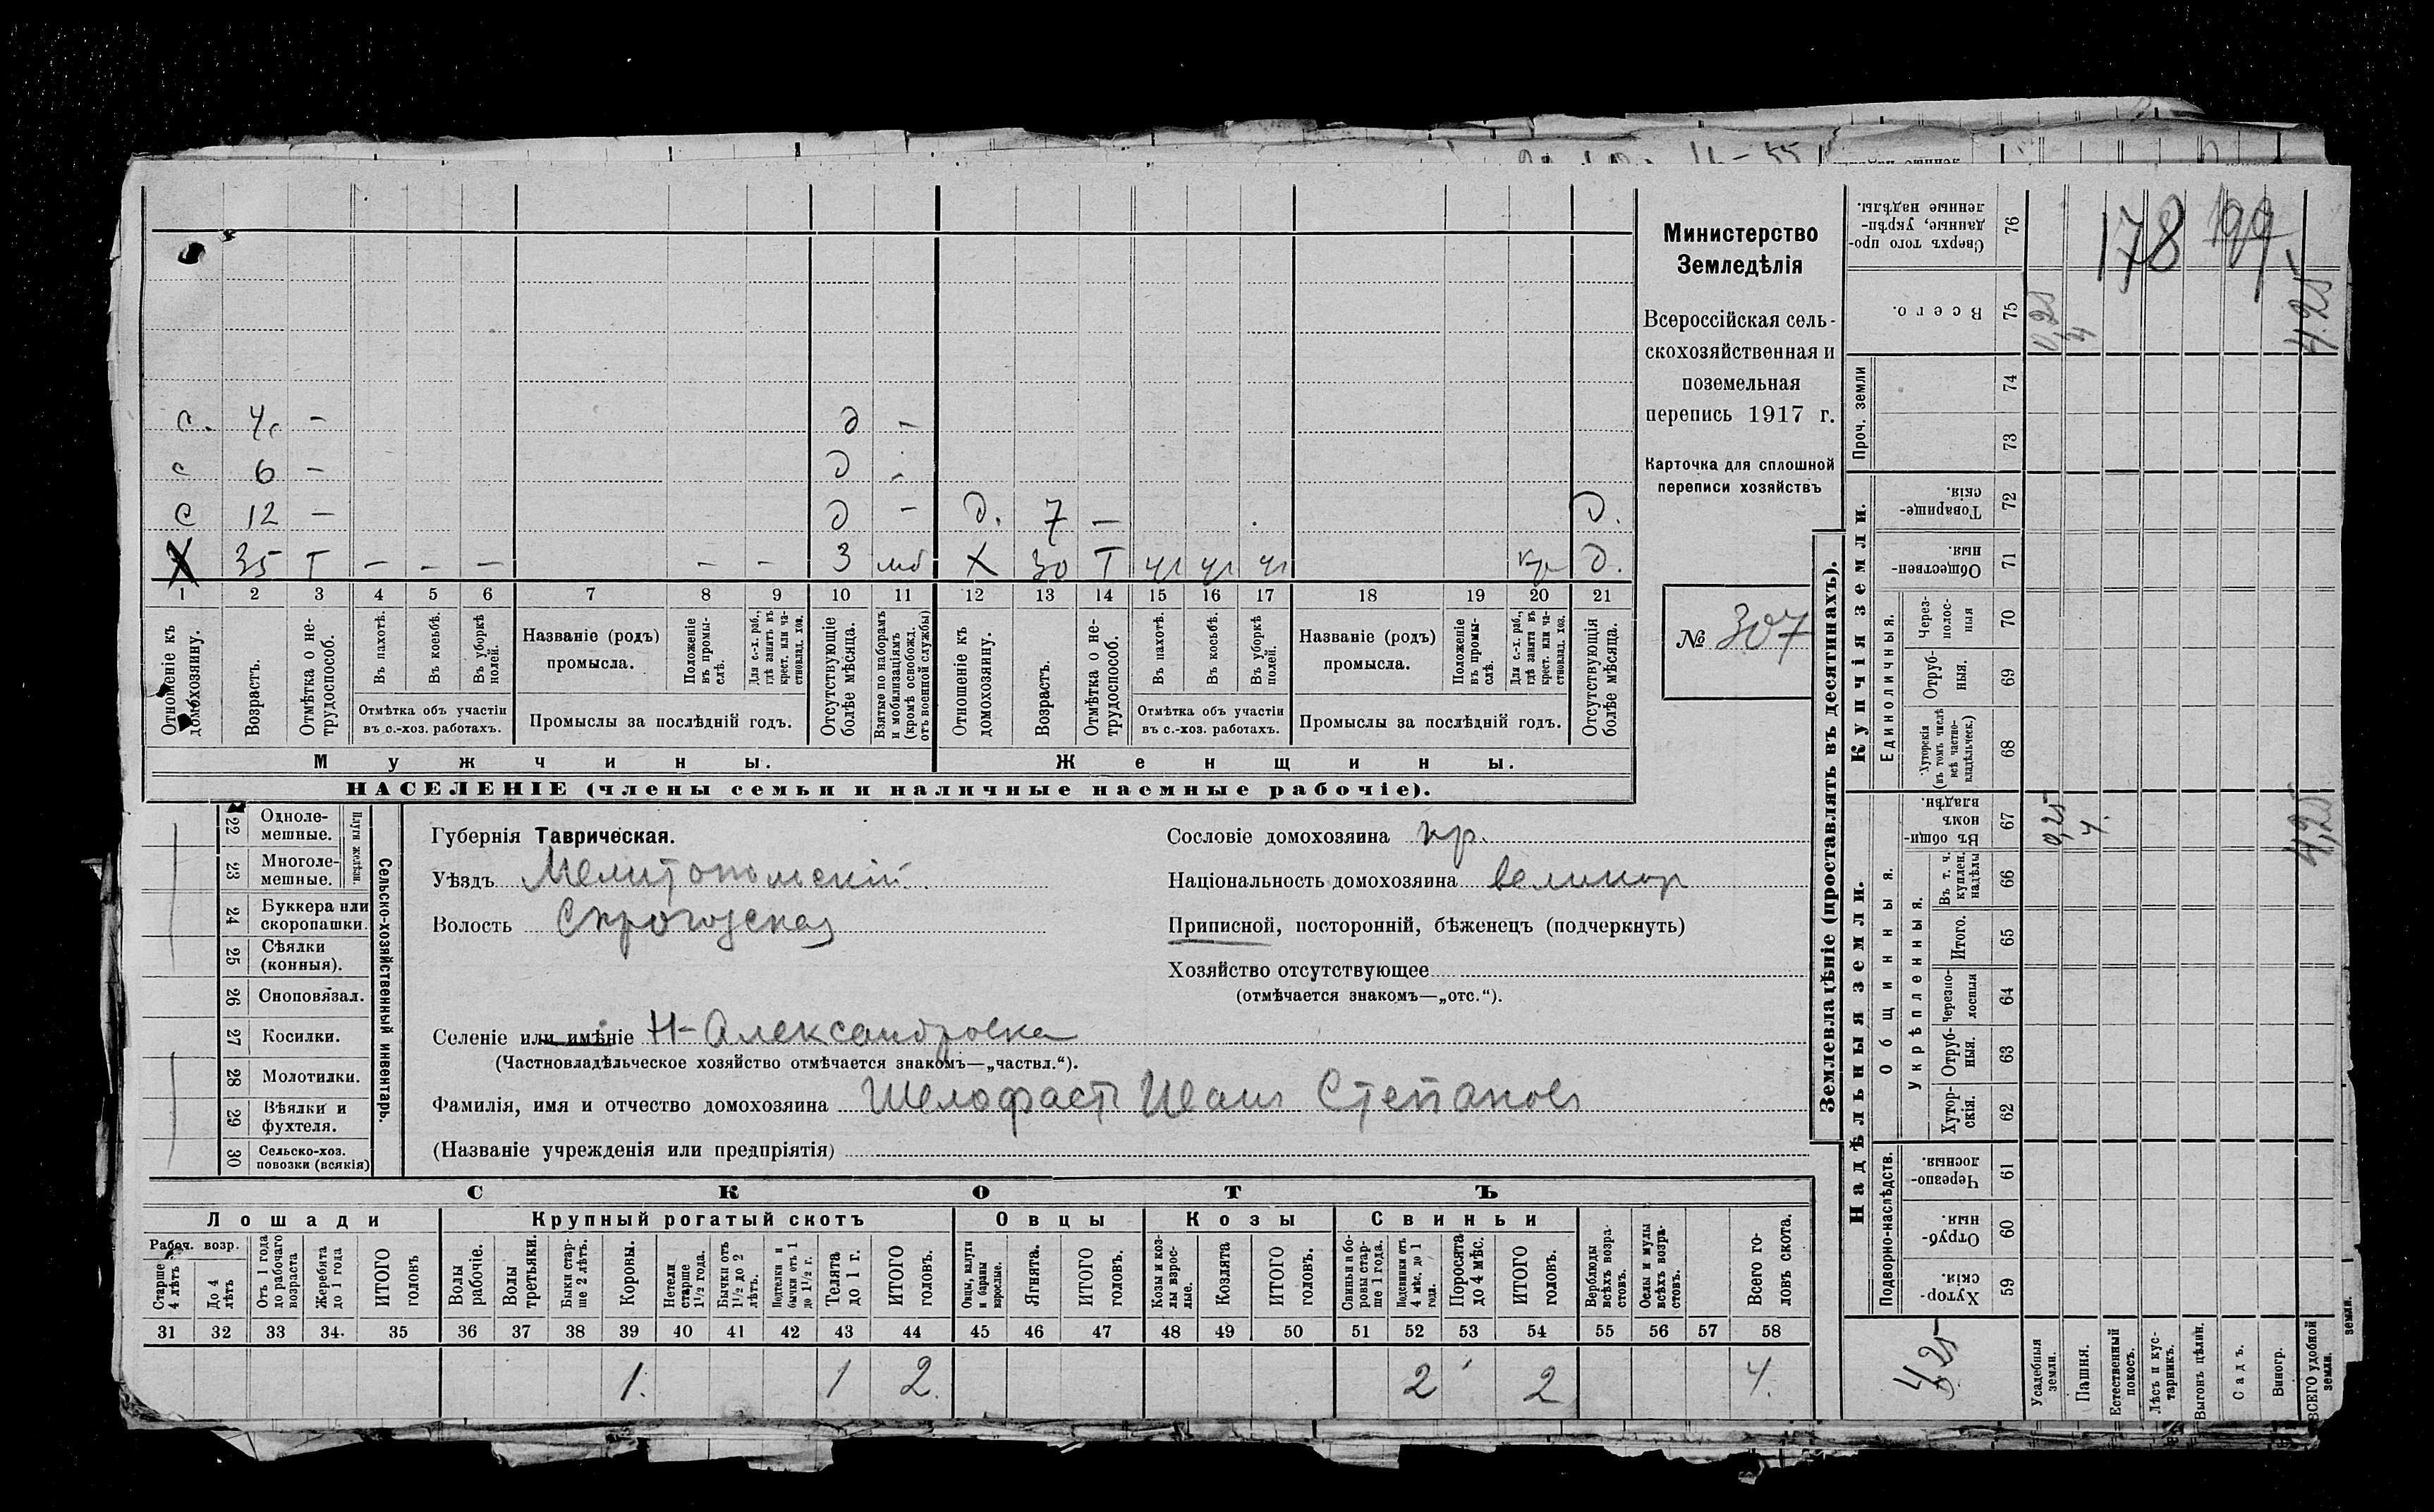 178 199
Министерство
Земледѣлія
Всероссійская сель-
скохозяйственная и
поземельная
перепись 1917 г.
Карточка для сплошной
переписи хозяйствъ
№ 307
с. 4 – д –
с 6 – д –
с 12 – д – д. 7 – д.
Х 35 Т – – – – – 3 мб Х 30 Т чг чг чг кр д.
1 2 3 4 5 6 7 8 9 10 11 12 13 14 15 16 17 18 19 20 21
Отношеніе къ домохозяину.
Возрастъ.
Отмѣтка о не-трудоспособ.
Въ пахотѣ.
Въ косьбѣ.
Въ уборкѣ полей.
Отмѣтка объ участіи
въ с.-хоз. работахъ.
Названіе (родъ)
промысла.
Положеніе въ промы-слѣ.
Для с.-х. раб., гдѣ занятъ въ крест. или ча-стновлад. хоз.
Промыслы за послѣдній годъ.
Отсутствующіе болѣе мѣсяца.
Взятые по наборамъ и мобилизаціямъ (кромѣ освобожд. отъ военной службы)
Отношеніе къ домохозяину.
Возрастъ.
Отмѣтка о не-трудоспособ.
Въ пахотѣ.
Въ косьбѣ.
Въ уборкѣ полей.
Отмѣтка объ участіи
въ с.-хоз. работахъ.
Названіе (родъ)
промысла.
Положеніе въ промы-слѣ.
Для с.-х. раб., гдѣ занята въ крест. или ча-стновлад. хоз.
Промыслы за послѣдній годъ.
Отсутствующія болѣе мѣсяца.
Мужчины. Женщины.
НАСЕЛЕНІЕ (члены семьи и наличные наемные рабочіе).
Сельско-хозяйственный инвентарь.
Плуги желѣзн.
22 Одноле-
мешные.
23 Многоле-
мешные.
24 Буккера или
скоропашки.
25 Сѣялки
(конныя).
26 Сноповязал.
27 Косилки.
28 Молотилки.
29 Вѣялки и
фухтеля.
30 Сельско-хоз.
повозки (всякія)
Губернія Таврическая.
Уѣздъ Мелитопольскій.
Волость
Селеніе или имѣніе Н-Александровка
(Частновладѣльческое хозяйство отмѣчается знакомъ—„частвл.“).
Фамилія, имя и отчество домохозяина Шелофастъ Иванъ Степановъ
(Названіе учрежденія или предпріятія)
Сословіе домохозяина кр.
Національность домохозяина великор
Приписной, посторонній, бѣженецъ (подчеркнуть)
Хозяйство отсутствующее
(отмѣчается знакомъ—„отс.“).
СКОТЪ
Лошади Крупный рогатый скотъ Овцы Козы Свиньи
Рабоч. возр.
Старше 4 лѣтъ
До 4 лѣтъ
Отъ 1 года до рабочаго возраста
Жеребята до 1 года
ИТОГО головъ
Волы рабочіе.
Волы третьяки.
Быки стар-ше 2 лѣтъ.
Коровы.
Нетели старше 1½ года.
Бычки отъ 1½ до 2 лѣтъ.
Подтелки и бычки отъ 1 до 1½ г.
Телята до 1 г.
ИТОГО головъ.
Овцы, валухи и бараны взрослые.
Ягнята.
ИТОГО головъ.
Козы и коз-лы взрос-лые.
Козлята
ИТОГО головъ.
Свиньи и бо-ровы стар-ше 1 года.
Подсвинки отъ 4 мѣс. до 1 года.
Поросята до 4 мѣс.
ИТОГО головъ.
Верблюды всѣхъ возра-стовъ.
Ослы и мулы всѣхъ возра-стовъ.
Всего го-ловъ скота.
31 32 33 34. 35 36 37 38 39 40 41 42 43 44 45 46 47 48 49 50 51 52 53 54 55 56 57 58
1. 1 2. 2 2 4.
Землевладѣніе (проставлять въ десятинахъ).
Купчія земли.
Надѣльныя земли.
Сверхъ того про-данные, укрѣп-ленные надѣлы. 76
Всего. 75 0,25 4 4.25
Проч. земли 74
73
Товарище-скія. 72
Обществен-ныя. 71
Единоличныя.
Через-полос-ныя 70
Отруб-ныя. 69
Хуторскія (въ томъ числѣ всѣ частно-владѣльческ.) 68
Общинныя.
Въ общи-номъ владѣн. 67 0,25 4. 4,25
Укрѣпленныя.
Въ т. ч. куплен. надѣлы 66
Итого. 65
Черезпо-лосныя 64
Отруб-ныя. 63
Хутор-скія. 62
Подворно-наслѣдств.
Черезпо-лосныя. 61
Отруб-ныя. 60
Хутор-скія. 59
4,25
Усадебныя земли.
Пашня.
Естественный покосъ.
Лѣсъ и кус-тарникъ.
Выгонъ цѣлин.
Садъ.
Виногр.
ВСЕГО удобной земли.
земли.